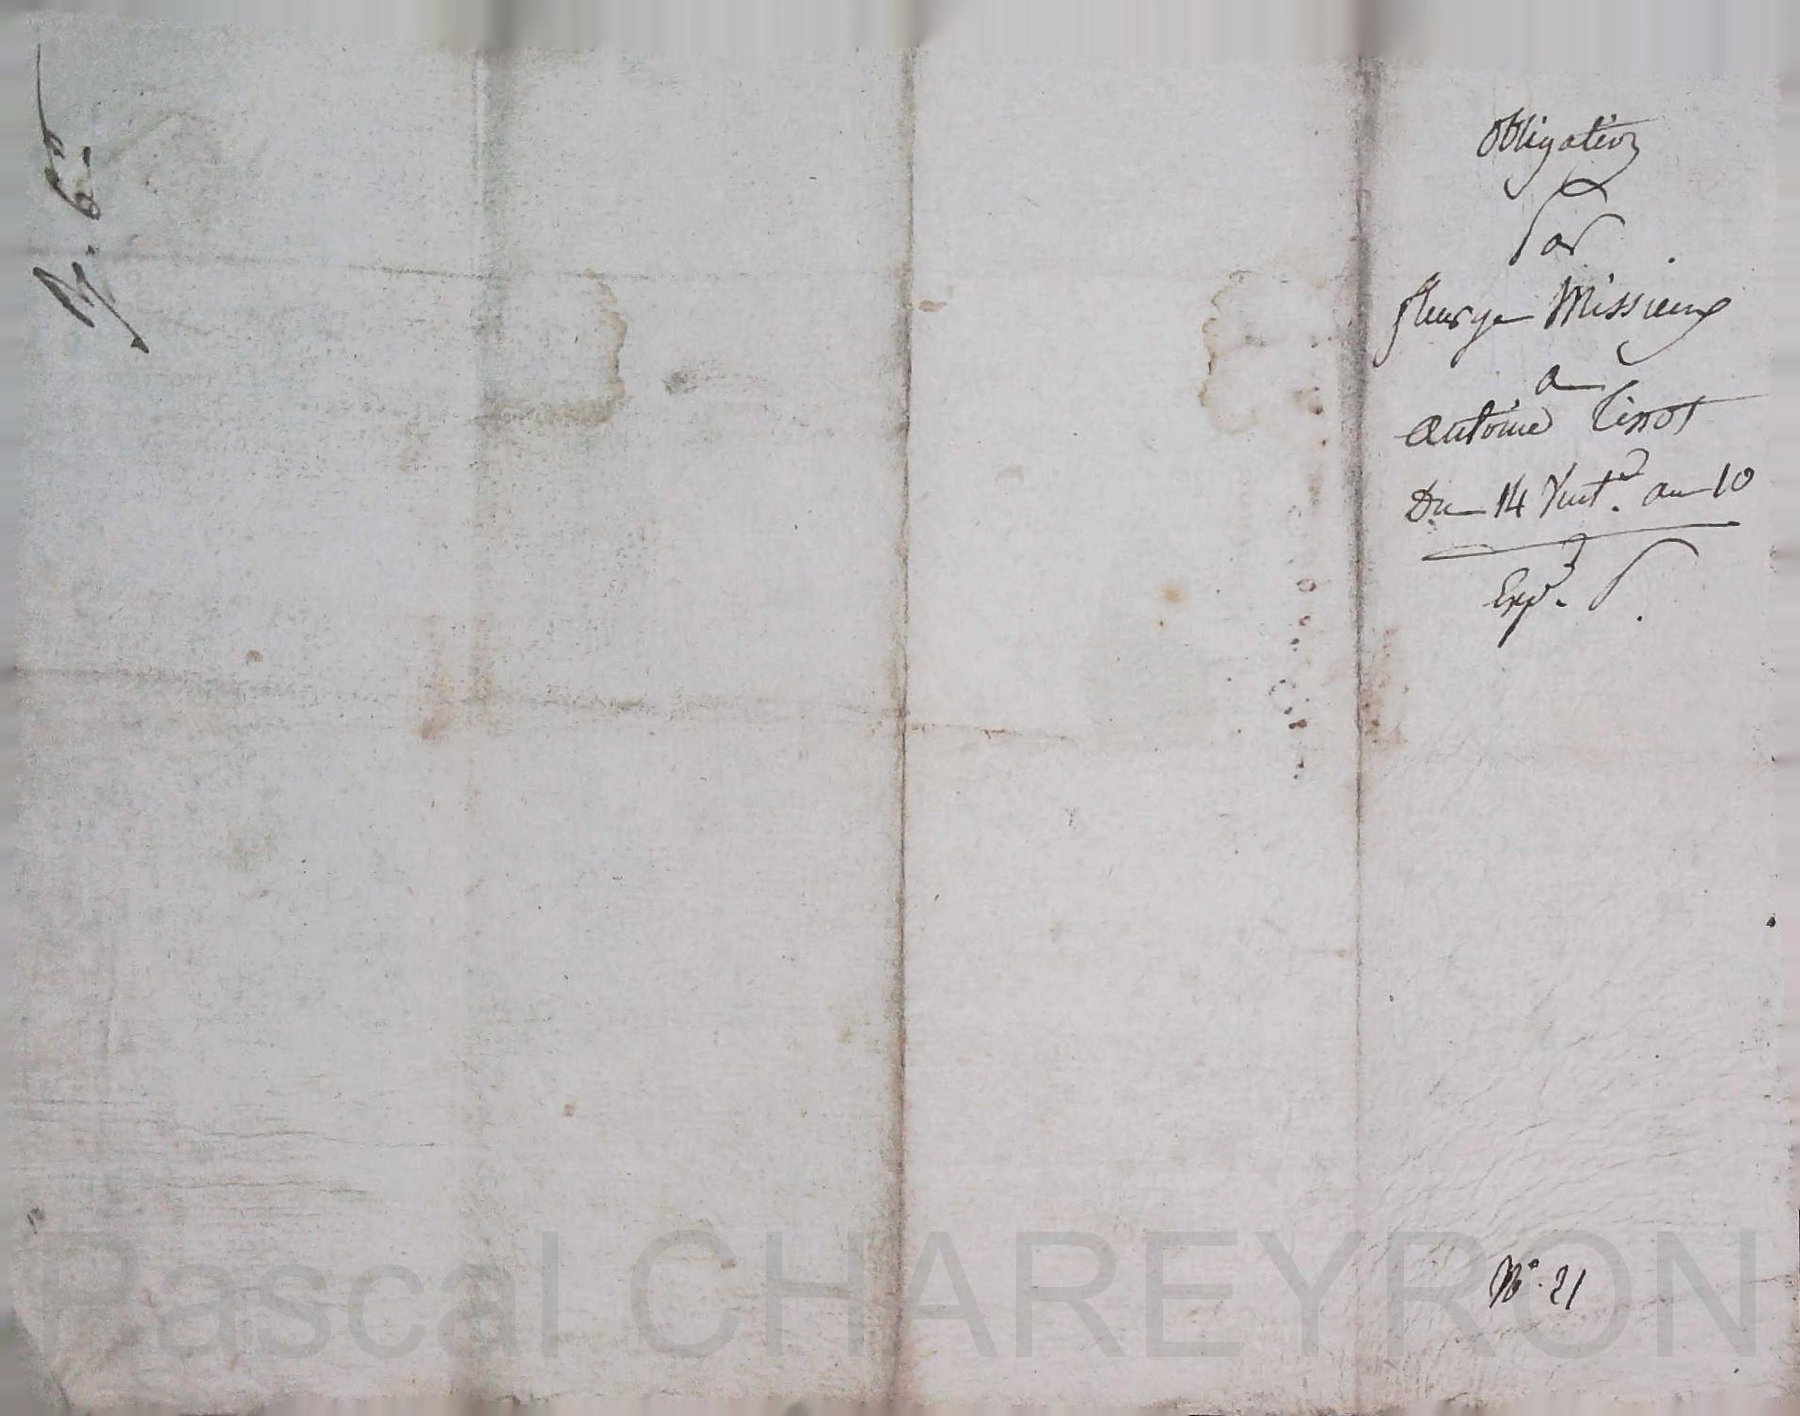 Obligation
Par
fleurye Missieux
a
antoine Tissot
Du 14 Vent.e an 10
Exp.
No. 21
Pascal CHAREYRON